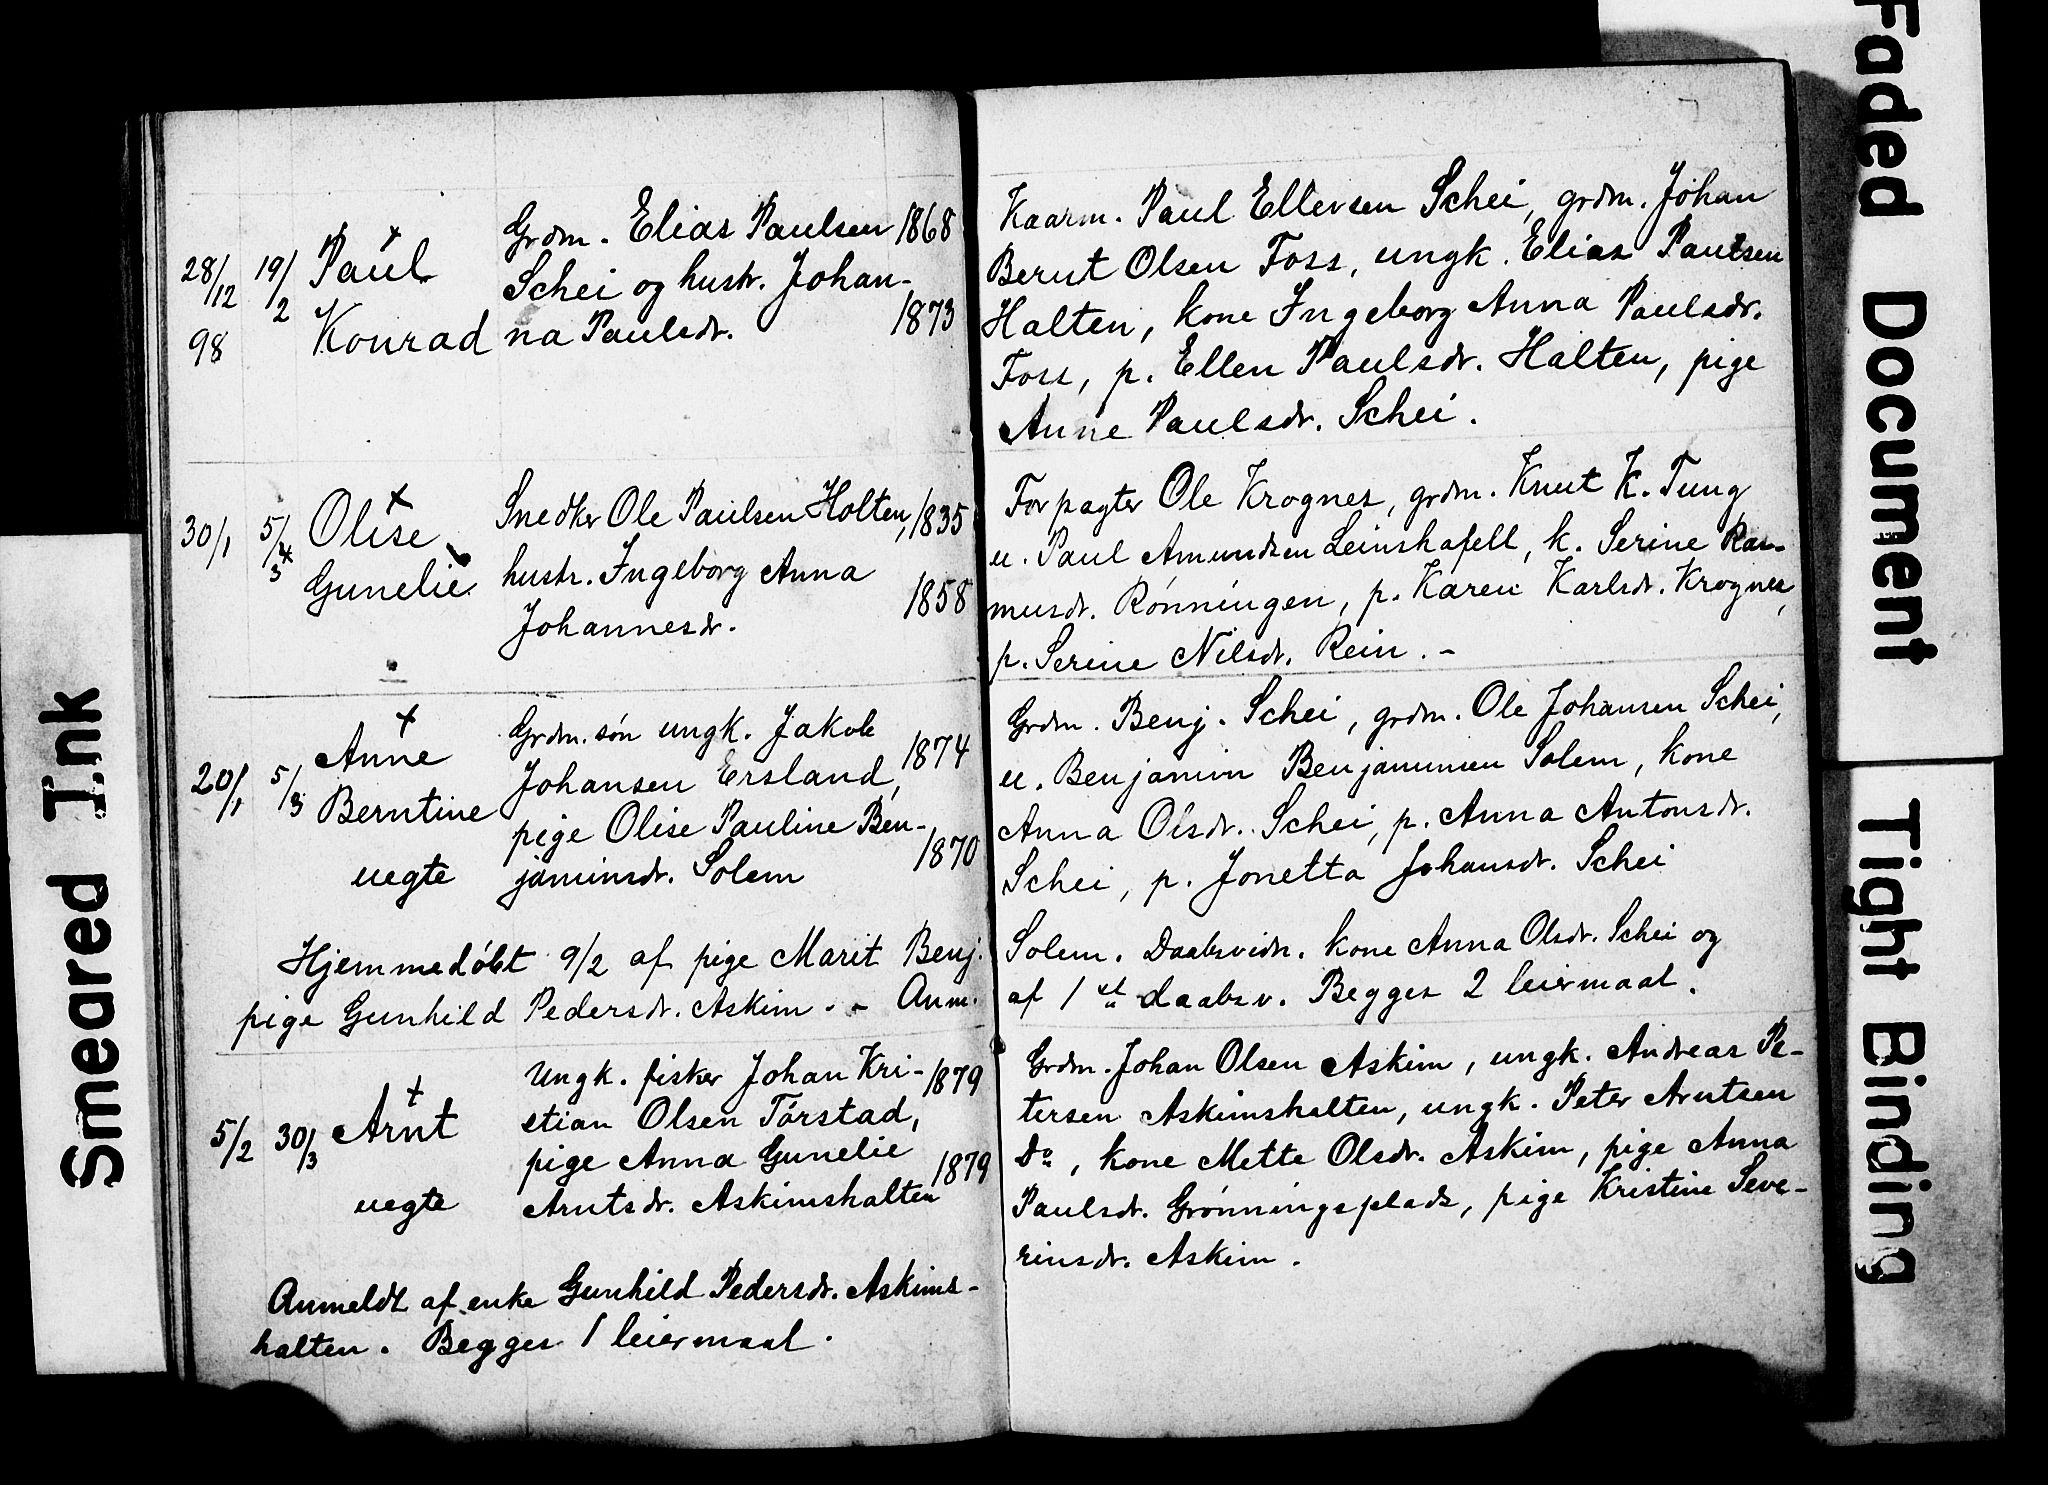 28/12 98 19/2 Paul Konrad
Grdm. Elias Paulsen 1868
Schei og hustr. Johan-
na Paulsdr. 1873
Kaarm. Paul Ellevsen Schei, grdm. Johan
Bernt Olsen Foss, ungk. Elias Paulsen
Halten, kone Ingeborg Anna Paulsdr.
Foss, p. Ellen Paulsdr. Halten, pige
Anne Paulsdr. Schei.
30/1 5/3 Olise Gunelie
Snedker Ole Paulsen Holten, 1835
hustr. Ingeborg Anna
Johannesdr. 1858
Forpagter Ole Krognes, grdm. Knut K. Tung
u. Paul Amundsen Leinshafell, k. Serine Ras-
musdr. Rønningen, p. Karen Karlsdr. Krognes,
p. Serine Nilsdr. Rein. -
20/1 5/3 Anne Berntine uegte
Grdm.søn ungk. Jakob
Johansen Ersland, 1874
pige Olise Pauline Ben-
jaminsdr. Solem 1870
Grdm. Benj. Schei, grdm. Ole Johansen Schei,
u. Benjamin Benjaminsen Solem, kone
Anna Olsdr. Schei, p. Anna Antonsdr.
Schei, p. Jonetta Johansdr. Schei
Hjemmedøbt 9/2 af pige Marit Benj. Solem. Daabsvidn. kone Anna Olsdr. Schei og
pige Gunhild Pedersdr. Askim. - Anm. af 1st daabsv. Begges 2 leiermaal.
5/2 30/3 Arnt uegte
Ungk. fisker Johan Kri- 1879
stian Olsen Tørstad,
pige Anna Gunelie
Arntsdr. Askimshalten 1879
Grdm. Johan Olsen Askim, ungk. Andreas Pe-
tersen Askimshalten, ungk. Peter Arntsen
Do, kone Mette Olsdr. Askim, pige Anna
Paulsdr. Grønningsplads, pige Kristine Seve-
rinsdr. Askim.
Anmeldt af enke Gunhild Pedersdr. Askims-
halten. Begges 1 leiermaal.
Smeared Ink
Faded Document
Tight Binding